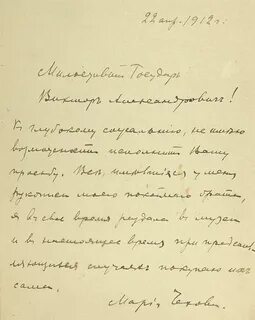 22 апр. 1912 г.
Милостивый Государь
Викторъ Александровичъ!
Къ глубокому сожалѣнію, не имѣю
возможности исполнить Вашу
просьбу. Всѣ имѣвшіяся у меня
рукописи моего покойнаго брата,
я въ свое время раздала въ музеи
и въ настоящее время при представ-
ляющихся случаяхъ покупаю ихъ
сама.
Марія Чехова.